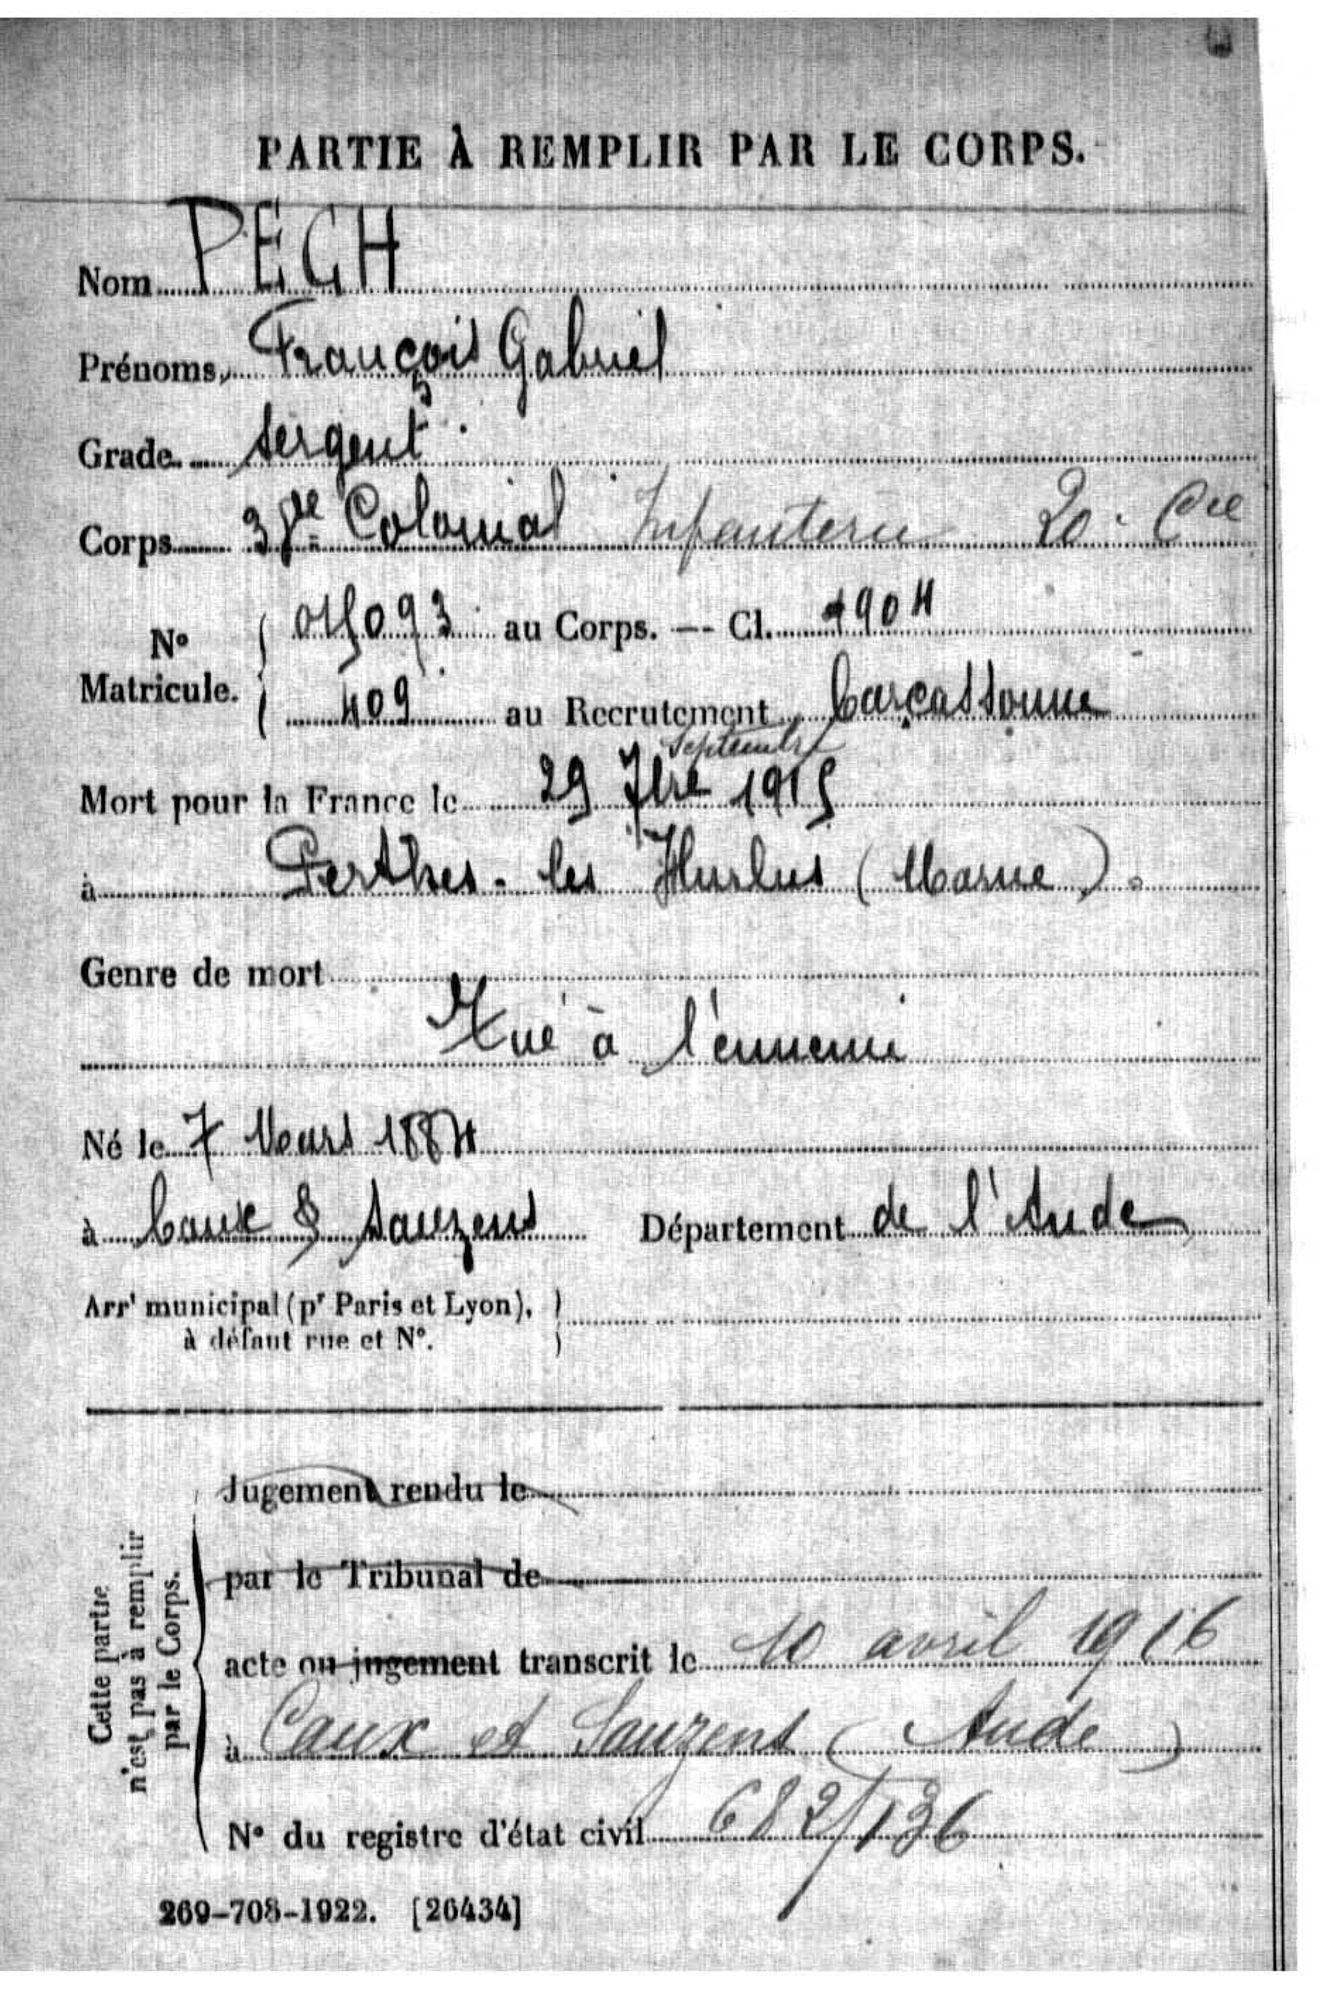 PARTIE À REMPLIR PAR LE CORPS.
Nom PECH
Prénoms, François Gabriel
Grade sergent
Corps 38e Colonial Infanterie 20e Cie
N° Matricule.
015093 au Corps. — Cl. 1904
409 au Recrutement Carcassonne
Septembre
Mort pour la France le 29 7bre 1915
à Perthes-les Hurlus (Marne).
Genre de mort
Tué à l'ennemi
Né le 7 Mars 1884
à Caux & Sauzens Département de l'Aude
Arrt municipal (pr Paris et Lyon),
à défaut rue et N°.
Cette partie
n'est pas à remplir
par le Corps.
Jugement rendu le
par le Tribunal de
acte ou jugement transcrit le 10 avril 1916
à Caux et Sauzens (Aude)
N° du registre d'état civil 682/136
269-708-1922. [26434]